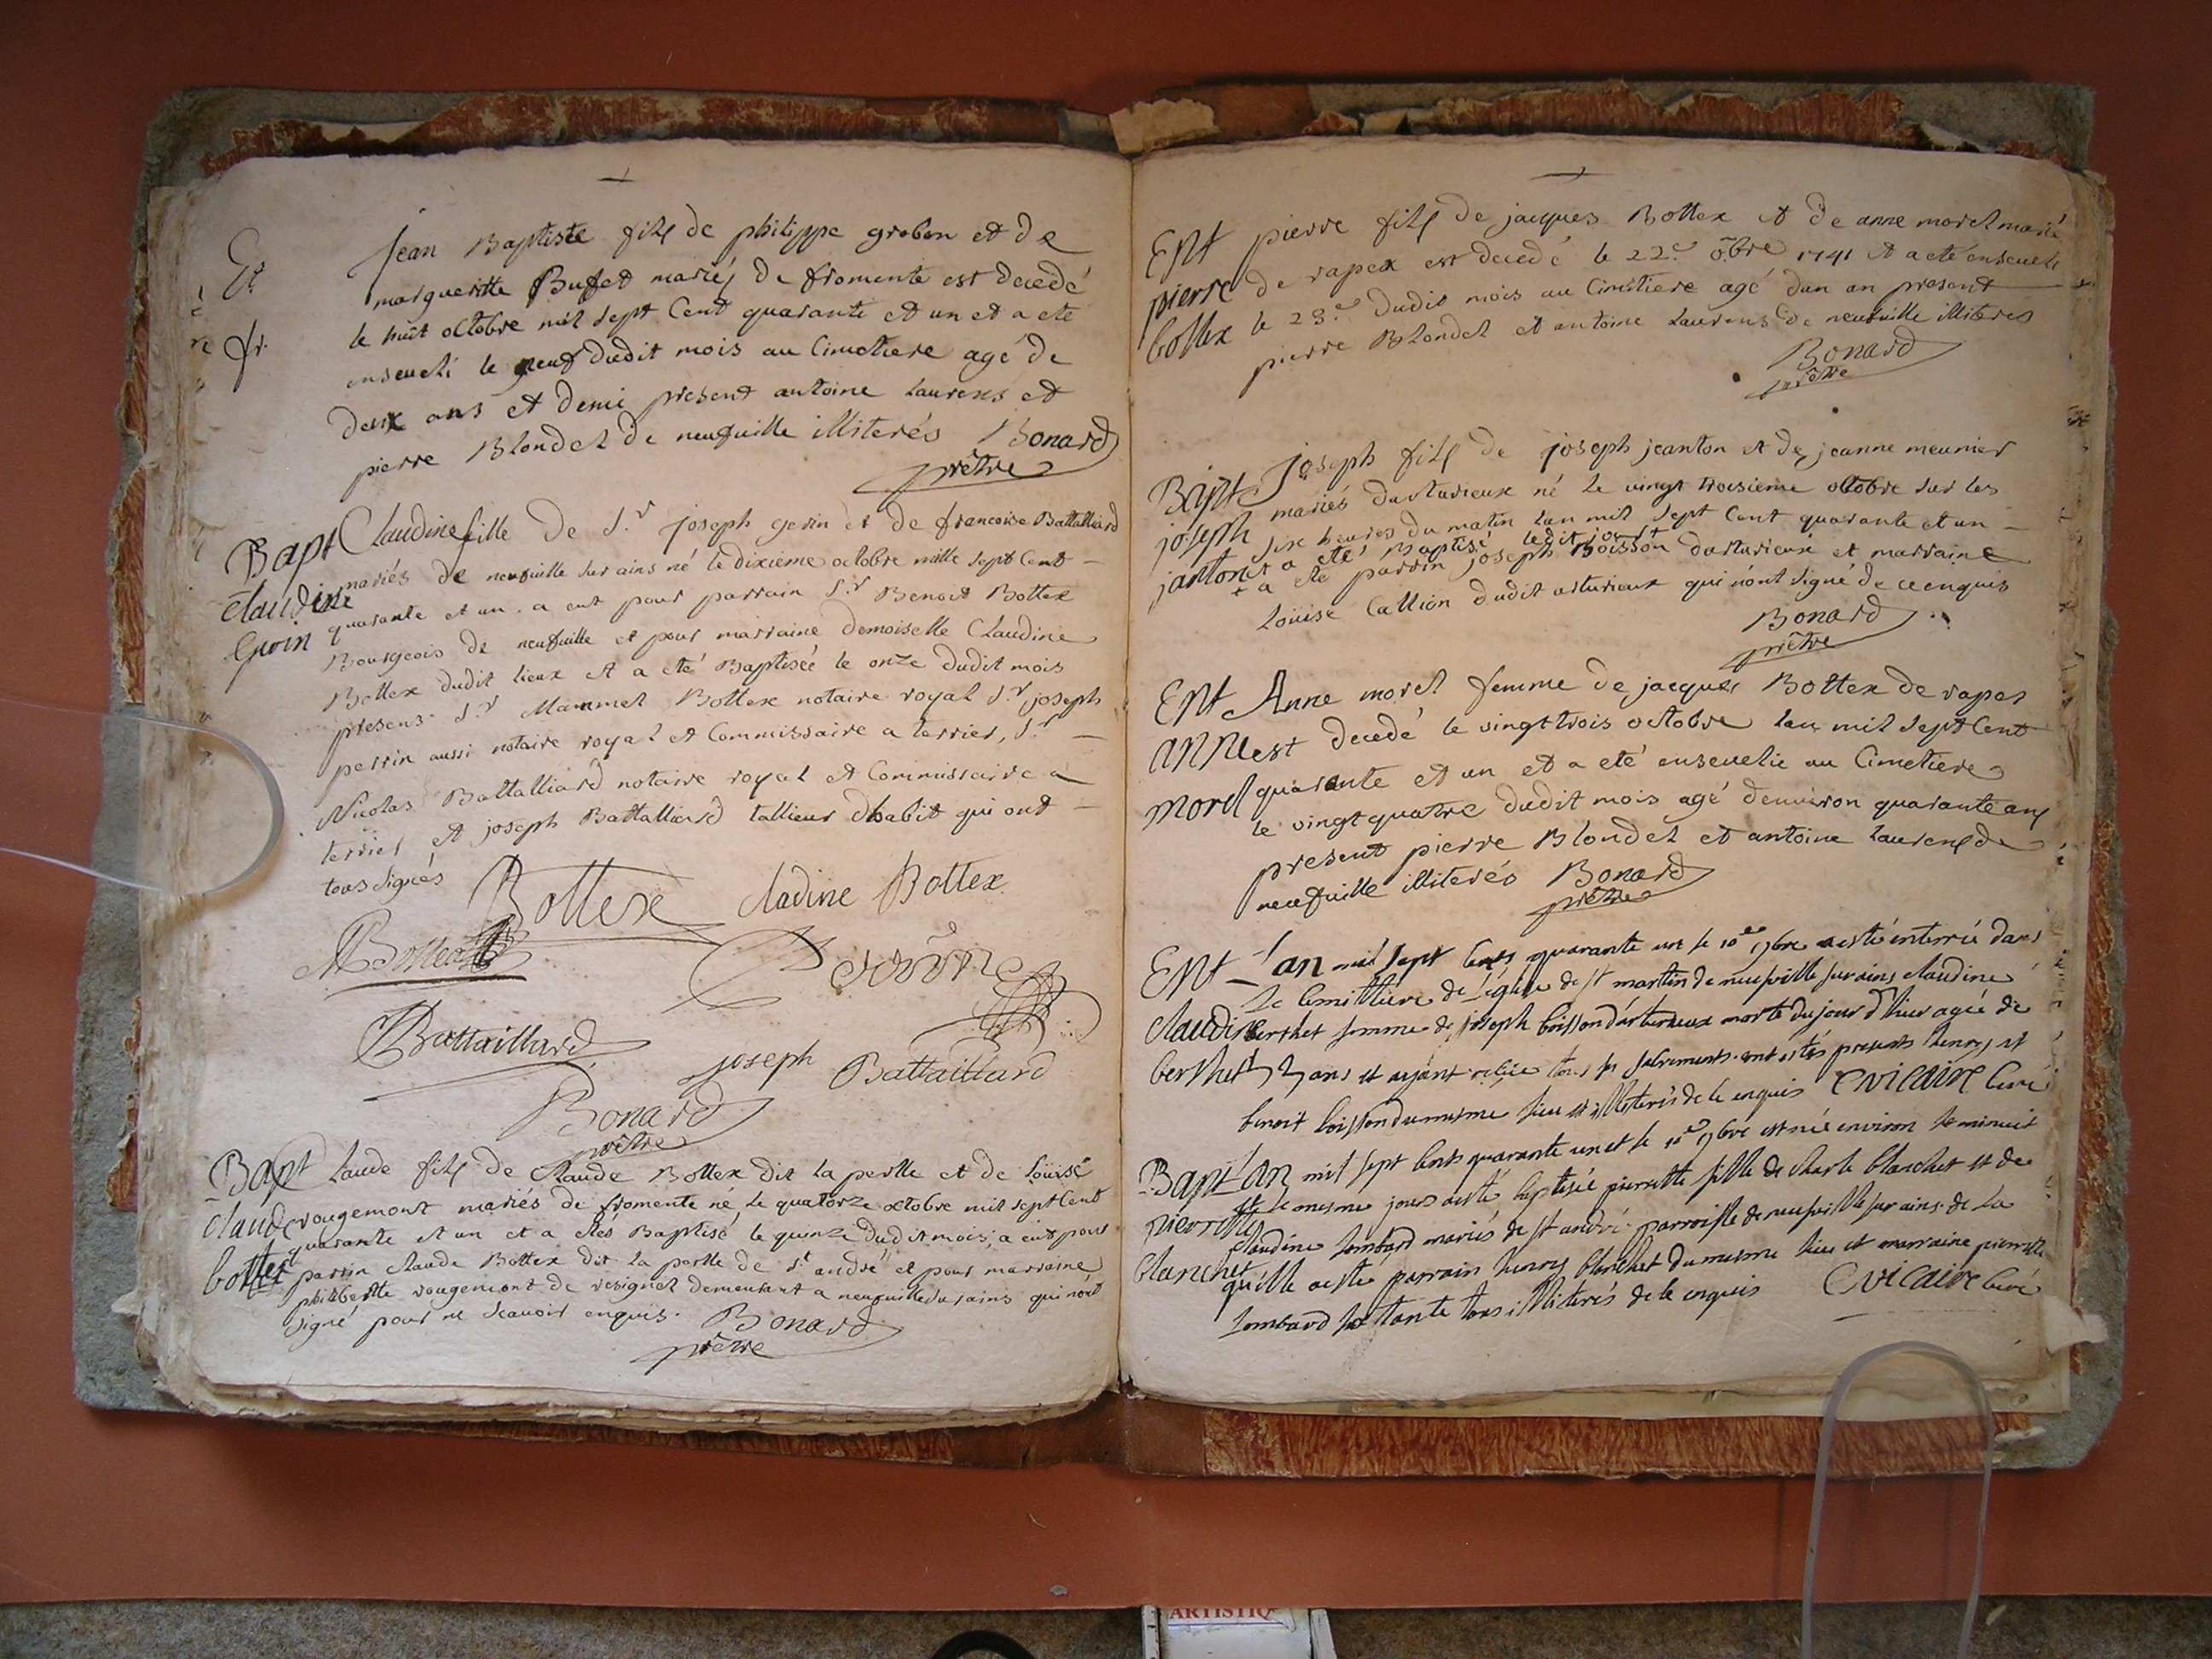 Et
fr.
Jean Baptiste fils de philippe grobon et de
margueritte Bufet mariés de fromente est decedé
le huit octobre mil sept Cent quarante et un et a eté
enseveli le neuf dudit mois au Cimetiere agé de
deux ans et demi present antoine Laurens et
pierre Blondel de neufuille illiterés Bonard
prêtre
Bapt Claudine fille de S.r joseph gerin et de francoise Battalliard
Claudine mariés de neufuille sur ains né le dixieme octobre mille sept Cent
quarante et un. a eut pour parrain S.r Benoit Bottex
Bourgeois de neufuille et pour marraine demoiselle Claudine
Bottex dudit lieux et a eté Baptisée le onze dudit mois
presens S.r Mammet Bottex notaire royal S.r joseph
perrin aussi notaire royal et Commissaire a terrier, S.r
Nicolas Battalliard notaire royal et Commissaire a
terrier et joseph Battalliard tallieur dhabit qui ont
tous signés
Bottex cladine Bottex
Battaillard
joseph Battaillard
Bonard
prêtre
Bapt Claude fils de Claude Bottex dit la perlle et de Loüise
claude rougemont mariés de fromente né le quatorze octobre mil sept Cent
quarante et un et a etés Baptisé le quinze dudit mois, a eut pour
bottex parrin claude Bottex dit la perlle de St andré et pour marraine
philiberte rougemont de resignel demeurant a neufuille sur ains qui n'ont
signé pour ne scavoir enquis. Bonard
prêtre
Ent pierre fils de jacques Bottex et de anne morel marié
pierre de rapex est decedé le 22.e 8.bre 1741 et a eté enseveli
bottex le 23.e dudit mois au Cimitiere agé dun an present
pierre Blondel et antoine Laurens de neufuille illiteres
Bonard
prêtre
Bapt Joseph fils de joseph jeanton et de jeanne meunier
joseph mariés darturieux né le vingt troisieme octobre sur les
six heures du matin lan mil sept Cent quarante et un
janton et a eté Baptisé ledit jour +
+ a eté parrin joseph Boisson darturieux et marraine
Loüise Callion dudit arturieux qui n'ont signé de ce enquis
Bonard
prêtre
Ent Anne morel femme de jacques Bottex de rapes
anne est decedé le vingt trois octobre lan mil sept Cent
morel quarante et un et a eté ensevelie au Cimetiere
le vingt quatre dudit mois agé denviron quarante ans
present pierre Blondel et antoine Laurens de
neufuille illiterés Bonard
prêtre
Ent L'an mil sept Cents quarante un le 10e 9bre a esté interrée dans
le Cemittiere de l'église de st martin de neufville sur ains, claudine
claudine berthet femme de joseph boisson d'arturieux morte du jour d'hier agée de
berthet ans et ayant tous ses sacrements. ont estés presents henry et
benoit boisson du mesme lieu et illiterés de ce enquis Evicaire Curé
Bapt L'an mil sept Cents quarante un et le 10e 9bre est née environ le minuit
et le mesme jour a esté baptisée pierrette fille de charle blanchet et de
pierrette claudine lombard mariés de st andré parroisse de neufville sur ains. de la
blanchet quelle a esté parrain henry blanchet du mesme lieu et marraine pierrette
lombard sa tante tous illiterés de ce enquis Evicaire Curé
ARTISTIQ